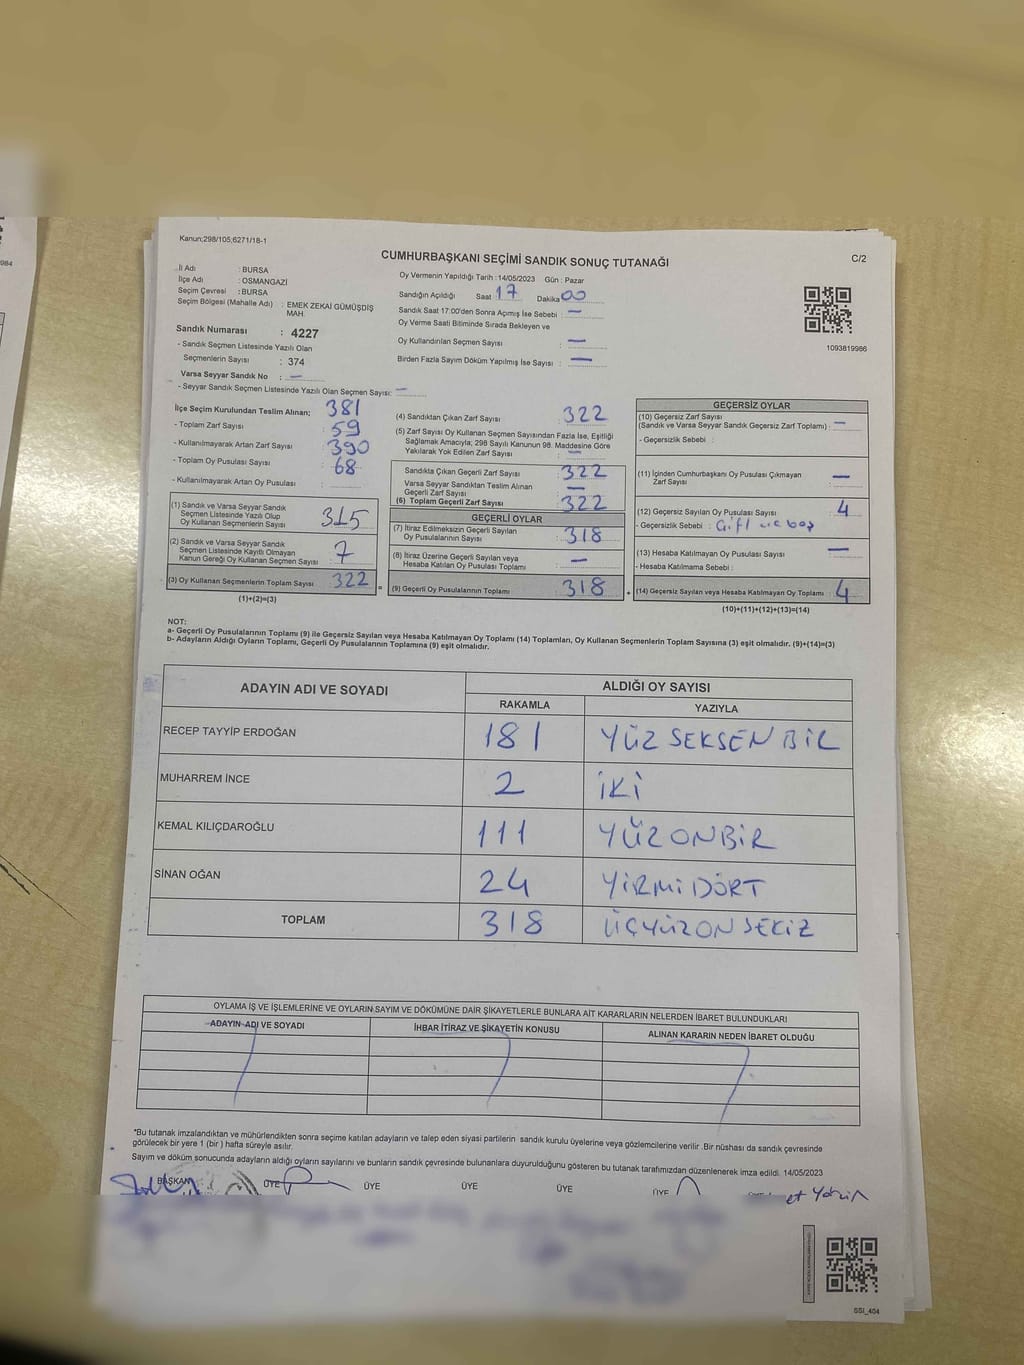 Kanun;298/105;6271/18-1
CUMHURBAŞKANI SEÇİMİ SANDIK SONUÇ TUTANAĞI
C/2
984
İl Adı : BURSA
İlçe Adı : OSMANGAZİ
Seçim Çevresi : BURSA
Seçim Bölgesi (Mahalle Adı) : EMEK ZEKAİ GÜMÜŞDİŞ
MAH.
Sandık Numarası : 4227
- Sandık Seçmen Listesinde Yazılı Olan
Seçmenlerin Sayısı : 374
Varsa Seyyar Sandık No : —
- Seyyar Sandık Seçmen Listesinde Yazılı Olan Seçmen Sayısı: —
Oy Vermenin Yapıldığı Tarih : 14/05/2023 Gün : Pazar
Sandığın Açıldığı Saat 17 Dakika 00
Sandık Saat 17:00'den Sonra Açımış İse Sebebi : —
Oy Verme Saati Bitiminde Sırada Bekleyen ve
Oy Kullandırılan Seçmen Sayısı : —
Birden Fazla Sayım Döküm Yapılmış İse Sayısı : —
1093819986
İlçe Seçim Kurulundan Teslim Alınan;
- Toplam Zarf Sayısı : 381
- Kullanılmayarak Artan Zarf Sayısı : 59
- Toplam Oy Pusulası Sayısı : 390
- Kullanılmayarak Artan Oy Pusulası : 68
(1) Sandık ve Varsa Seyyar Sandık
Seçmen Listesinde Yazılı Olup
Oy Kullanan Seçmenlerin Sayısı 315
(2) Sandık ve Varsa Seyyar Sandık
Seçmen Listesinde Kayıtlı Olmayan
Kanun Gereği Oy Kullanan Seçmen Sayısı 7
(3) Oy Kullanan Seçmenlerin Toplam Sayısı 322
(1)+(2)=(3)
(4) Sandıktan Çıkan Zarf Sayısı : 322
(5) Zarf Sayısı Oy Kullanan Seçmen Sayısından Fazla İse, Eşitliği
Sağlamak Amacıyla; 298 Sayılı Kanunun 98. Maddesine Göre
Yakılarak Yok Edilen Zarf Sayısı : —
Sandıkta Çıkan Geçerli Zarf Sayısı : 322
Varsa Seyyar Sandıktan Teslim Alınan
Geçerli Zarf Sayısı : —
(6) Toplam Geçerli Zarf Sayısı : 322
GEÇERLİ OYLAR
(7) İtiraz Edilmeksizin Geçerli Sayılan
Oy Pusulası Sayısı : 318
(8) İtiraz Üzerine Geçerli Sayılan veya
Hesaba Katılan Oy Pusulası Toplamı : —
= (9) Geçerli Oy Pusulalarının Toplamı : 318
GEÇERSİZ OYLAR
(10) Geçersiz Zarf Sayısı
(Sandık ve Varsa Seyyar Sandık Geçersiz Zarf Toplamı) : —
- Geçersizlik Sebebi :
(11) İçinden Cumhurbaşkanı Oy Pusulası Çıkmayan
Zarf Sayısı : —
(12) Geçersiz Sayılan Oy Pusulası Sayısı : 4
- Geçersizlik Sebebi : Çift ve boş
(13) Hesaba Katılmayan Oy Pusulası Sayısı : —
- Hesaba Katılmama Sebebi :
+ (14) Geçersiz Sayılan veya Hesaba Katılmayan Oy Toplamı : 4
(10)+(11)+(12)+(13)=(14)
NOT:
a- Geçerli Oy Pusulalarının Toplamı (9) ile Geçersiz Sayılan veya Hesaba Katılmayan Oy Toplamı (14) Toplamları, Oy Kullanan Seçmenlerin Toplam Sayısına (3) eşit olmalıdır. (9)+(14)=(3)
b- Adayların Aldığı Oyların Toplamı, Geçerli Oy Pusulalarının Toplamına (9) eşit olmalıdır.
ADAYIN ADI VE SOYADI ALDIĞI OY SAYISI
RAKAMLA YAZIYLA
RECEP TAYYİP ERDOĞAN 181 YÜZ SEKSEN BİR
MUHARREM İNCE 2 İKİ
KEMAL KILIÇDAROĞLU 111 YÜZ ON BİR
SİNAN OĞAN 24 YİRMİ DÖRT
TOPLAM 318 ÜÇ YÜZ ON SEKİZ
OYLAMA İŞ VE İŞLEMLERİNE VE OYLARIN SAYIM VE DÖKÜMÜNE DAİR ŞİKAYETLERLE BUNLARA AİT KARARLARIN NELERDEN İBARET BULUNDUKLARI
ADAYIN ADI VE SOYADI İHBAR İTİRAZ VE ŞİKAYETİN KONUSU ALINAN KARARIN NEDEN İBARET OLDUĞU
*Bu tutanak imzalandıktan ve mühürlendikten sonra seçime katılan adayların ve talep eden siyasi partilerin sandık kurulu üyelerine veya gözlemcilerine verilir .Bir nüshası da sandık çevresinde
görülecek bir yere 1 (bir ) hafta süreyle asılır.
Sayım ve döküm sonucunda adayların aldığı oyların sayılarını ve bunların sandık çevresinde bulunanlara duyurulduğunu gösteren bu tutanak tarafımızdan düzenlenerek imza edildi. 14/05/2023
BAŞKAN ÜYE ÜYE ÜYE ÜYE ÜYE
SSI_404